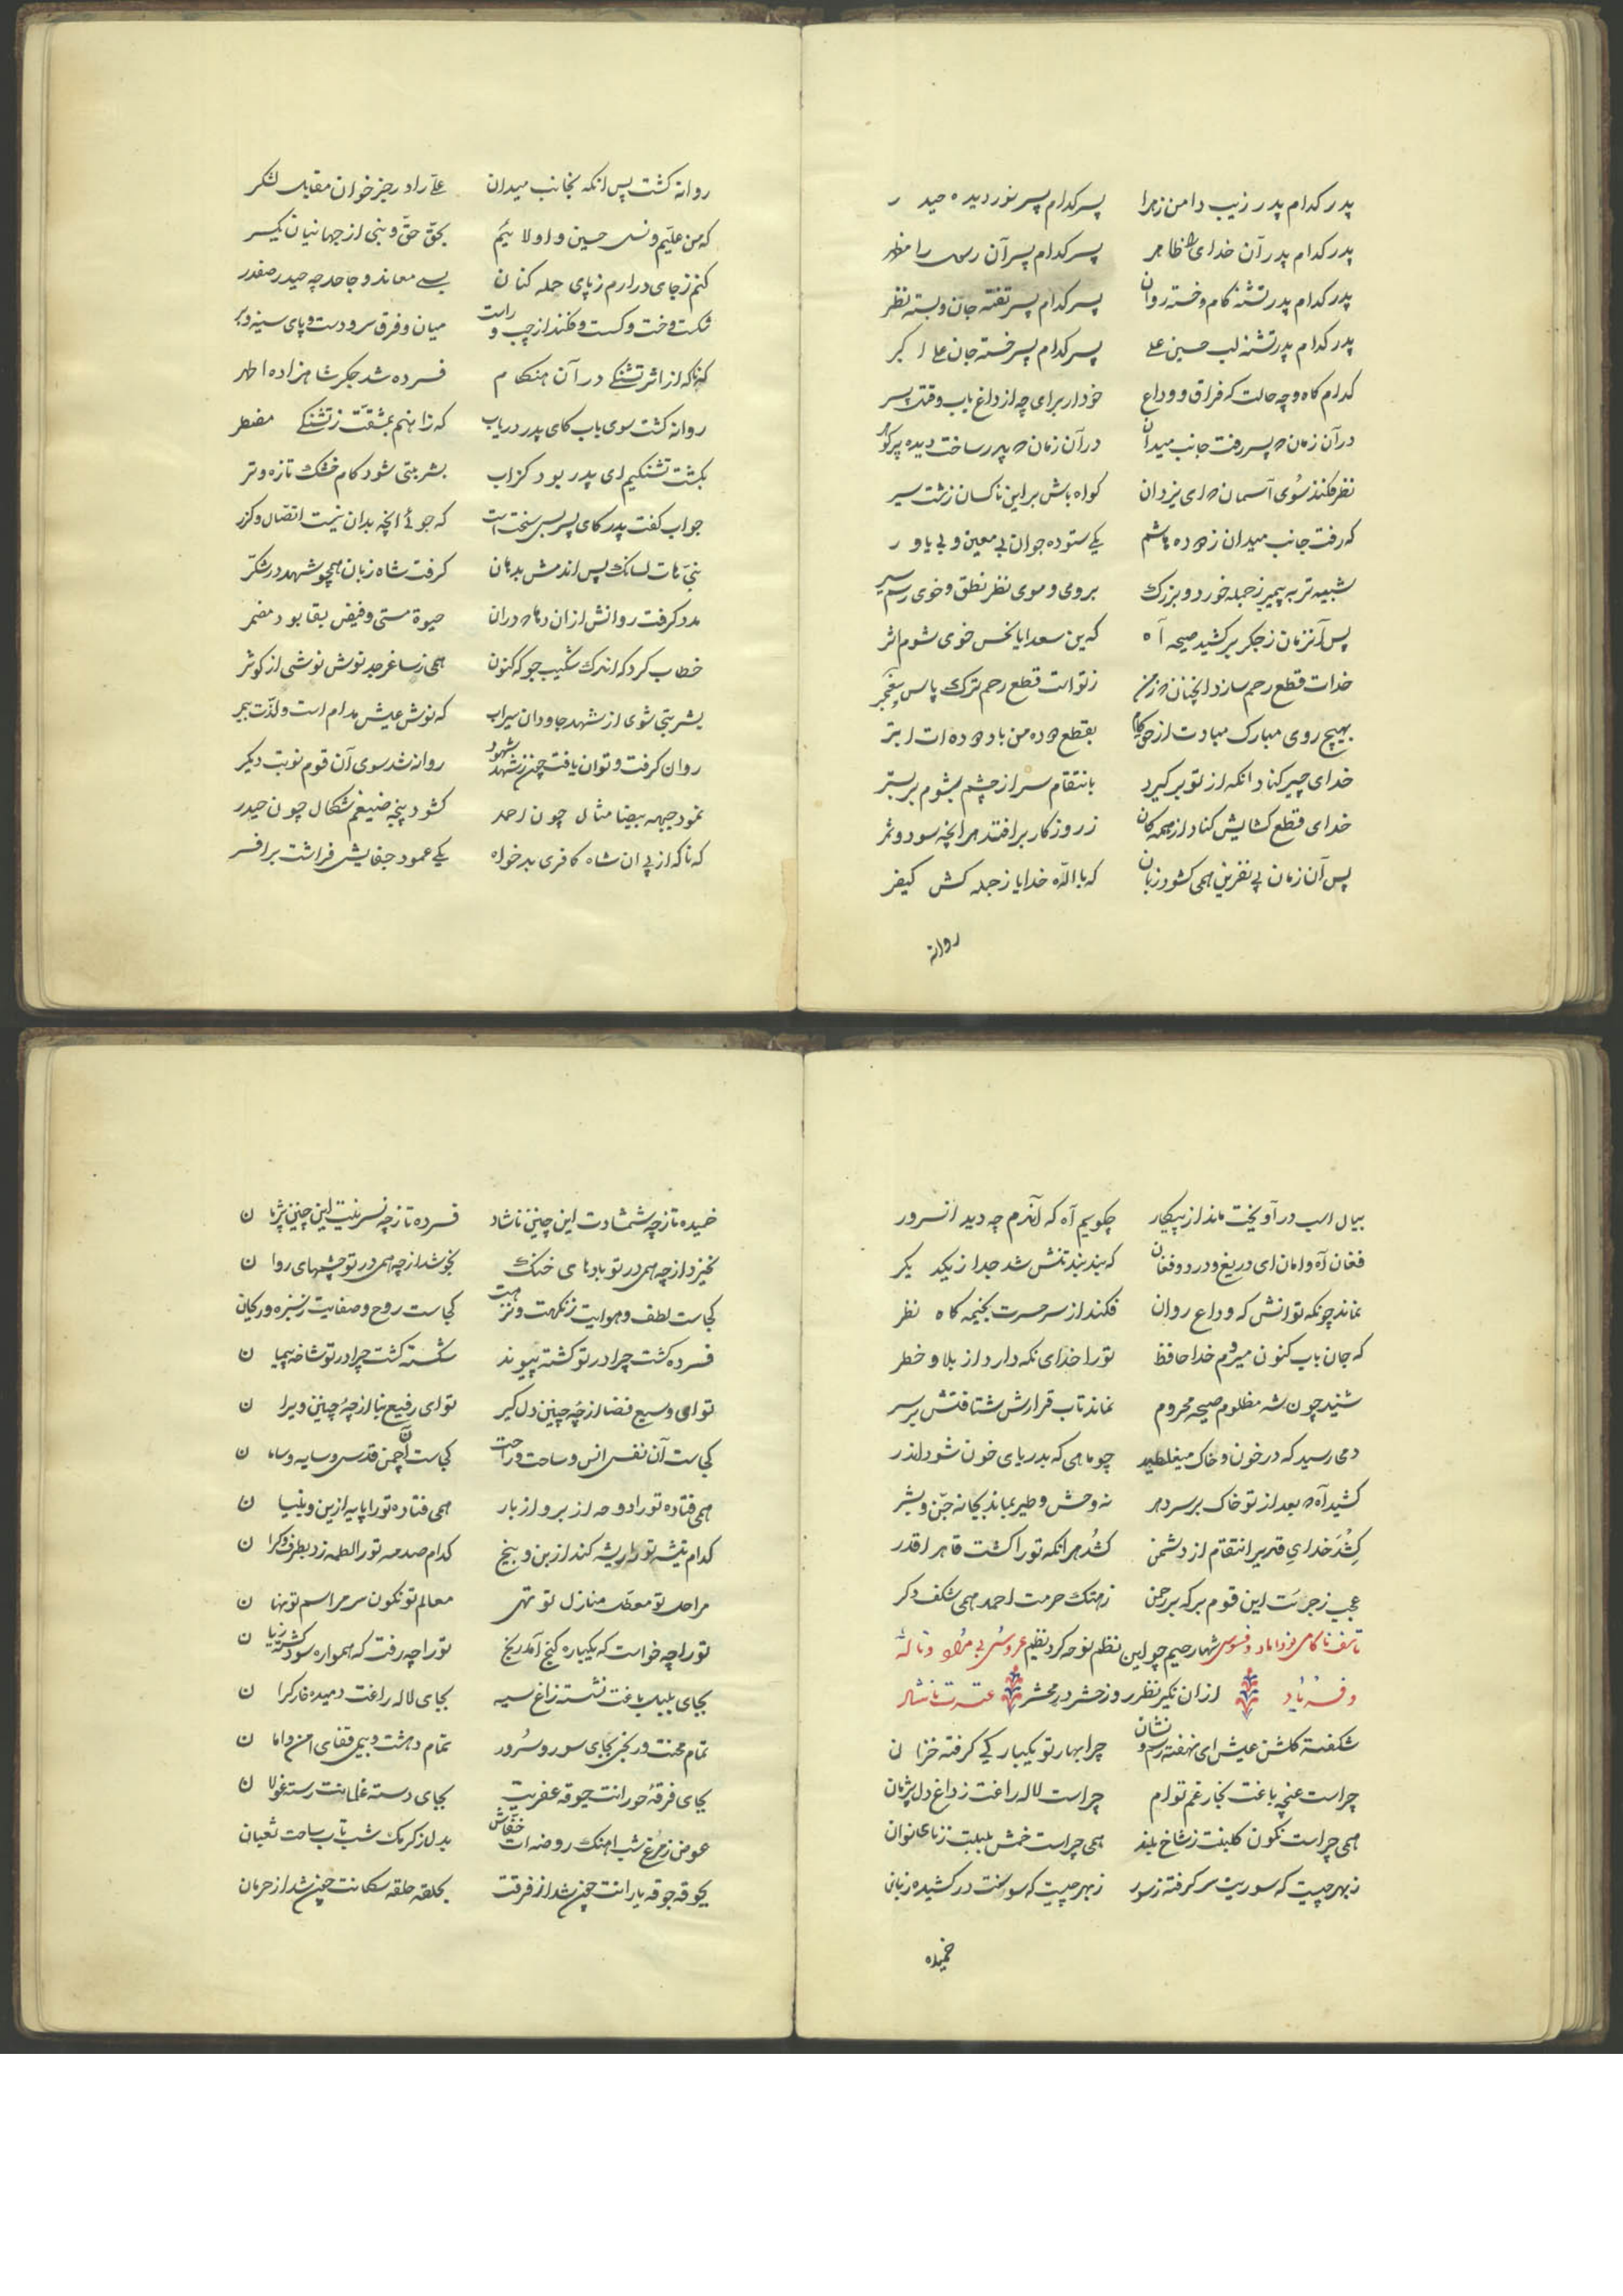 پدر کدام پدر زیب دامن زهرا پسر کدام پسر نور دیده حیدر
پدر کدام پدر آن خدای را ظاهر پسر کدام پسر آن رسول را مظهر
پدر کدام پدر تشنه کام و خسته روان پسر کدام پسر تفته جان و بسته نظر
پدر کدام پدر تشنه لب حسین علی پسر کدام پسر خسته جان علی اکبر
کدام کاه و چه حالت که فراق و وداع خود از برای چه از داغ باب وقت پسر
در آن زمان که پسر رفت جانب میدان در آن زمان که پدر ساخت دیده پرکوهر
نظر فکند سوی آسمان که ای یزدان کواه باش بر این ناکسان زشت سیر
که رفت جانب میدان زوده هاشم یکی ستوده جوان بی معین و بی یاور
شبیه تر به پیمبر ز جمله خورد و بزرک بروی و موی نظر نطق و خوی رسم سیر
پس آنزمان ز جکر برکشید صیحه آه که بن سعد ایا نحس خوی شوم اثر
خدات قطع رحم سازد انچنان که ز من ز تو است قطع رحم ترک پاس پیغمبر
بهیچ روی مبارک مبادت از حق کام بقطع وده من باد وده ات ابتر
خدای چیر کناد انکه از تو بر کیرد بانتقام سر از چشم بشوم بر بستر
خدای قطع کشایش کناد از همه کان ز روزکار بر افتد هر انچه سود و ثمر
پس آن زمان پی نفرین همی کشود زبان که با الله خدایا ز جمله کش کیفر
روانه
روانه کشت پس انکه بجانب میدان علی راد رجز خوان مقابل لشکر
که من علیم و نسل حسین و اولائیم بحق حق و نبی از جهانیان یکسر
کنم ز جای در ارم ز پای حمله کنان بسی معاند و جاحد چه حیدر صفدر
شکست و خست و کسست و فکند از چپ و راست میان و فرق سر و دست و پای سینه و بر
که ناکه از اثر تشنکی در آن هنکام فسرده شد جکر شاهزاده اطهر
روانه کشت سوی باب کای پدر دریاب که زا نهم بمشقت ز تشنکی مضطر
بکشت تشنکیم ای پدر بود کز اب بشربتی شود کام خشک تازه و تر
جواب کفت پدر کای پسر بسی سخت است که جوئی انچه بدان نیست اتصال و کزر
بنی هات لسانک پس اندمش بدهان کرفت شاه زبان همچو شهد در شکر
مدد کرفت روانش از ان دهان در ان حیوة مستی و فیض بقا بود مضمر
خطاب کرد که اندک شکیب جو که کنون همی ز ساغر جد نوش نوشی از کوثر
بشربتی شوی از شهد جاودان سیراب که نوش عیش مدام است و لذت بیمر
روان کرفت و توان یافت چون ز شهد شهود روانه شد سوی آن قوم نوبت دیکر
نمود جبهه بیضا مثال چون احمد کشود پنجه ضیغم شکال چون حیدر
که ناکه از پی ان شاه کافری بدخواه یکی عمود جفایش فراشت بر افسر
بیال اسب در آویخت ماند از پیکار چکویم آه که آندم چه دید انسرور
فغان آه و امان ای دریغ و درد و فغان که بند بند تنش شد جدا ز یکدیکر
نماند چونکه توانش که وداع روان فکند از سر حسرت بخیمه کاه نظر
که جان باب کنون میروم خدا حافظ تو را خدای نکه دارد از بلا و خطر
شنید چون شه مظلوم صیحه محروم نماند تاب قرارش شتافتش بر سر
دمی رسید که در خون و خاک میغلطید چو ماهی که بدریای خون شود اندر
کشید آه که بعد از تو خاک بر سر دهر نه وحش و طیر بماند بجا نه جن و بشر
کِشد خدای قدیر انتقام از دشمن کشد هر انکه تو را کشت قاهر اقدر
عجب ز جرئت این قوم بر که بر رحمن ز هتک حرمت احمد همی شکف دکر
تاسف ناکامی نو داماد و فسوس شها رحیم چو این نظم نوحه کرد نظیم عروس بی مراد و ناله
و فریاد از ان نکیر نظر روز حشر در محشر عترت ناشاد
شکفته کلشن عیش ای نهفته رسم و نشان چرا بهار تو یکبارکی کرفته خزان
چراست غنچه باغت بخار غم توام چراست لاله راغت ز داغ دل پژمان
همی چراست نکون کلبنت ز شاخ بلند همی چراست خمش بلبلت ز نای نوان
ز بهر چیست که سوریت سر کرفته ز سور ز بهر چیست که سوسنت در کشیده زبان
خمیده
خمیده تا ز چه شمشادت این چنین ناشاد فسرده تا ز چه نسرینت این چنین پژمان
نخیزد از چه همی در تو بادهای خنک نجوشد از چه همی در تو چشمهای روان
کجاست لطف و هوایت ز نکهت و نزهت کجاست روح و صفایت ز سبزه و ریحان
فسرده کشت چرا در تو کشته پیوند شکسته کشت چرا در تو شاخه پیمان
تو ای وسیع فضا از چه چنین دل کیر تو ای رفیع بنا از چه چنین ویران
کجاست آن نفس انس و ساحت و راحت کجاست آن چمن قدس و سایه و سامان
همی فتاده تو را دوحه از بر و از بار همی فتاده تو را پایه از بن و بنیان
کدام تیشه تو را ریشه کند از بن و بیخ کدام صدمه تو را لطمه زد بطرف و کران
مراحل تو معطل منازل تو تهی معالم تو نکون سر مراسم تو نهان
تو را چه خواست که یکباره کنج آمد رنج تو را چه رفت که همواره سود کشت زیان
بجای بلبل باغت نشسته زاغ سیه بجای لاله راغت دمیده خار کران
تمام محنت و رنجی بجای سور و سرور تمام دهشت و بیمی قفای امن و امان
بجای فرقه حورانت جوقه عفریت بجای دسته غلمانت رسته غولان
عوض ز مرغ شب اهنک روضه ات خفاش بدل ز کرمک شب تاب ساحت ثعبان
بجوقه جوقه یارانت چون شد از فرقت بحلقه حلقه سکانت چون شد از حرمان